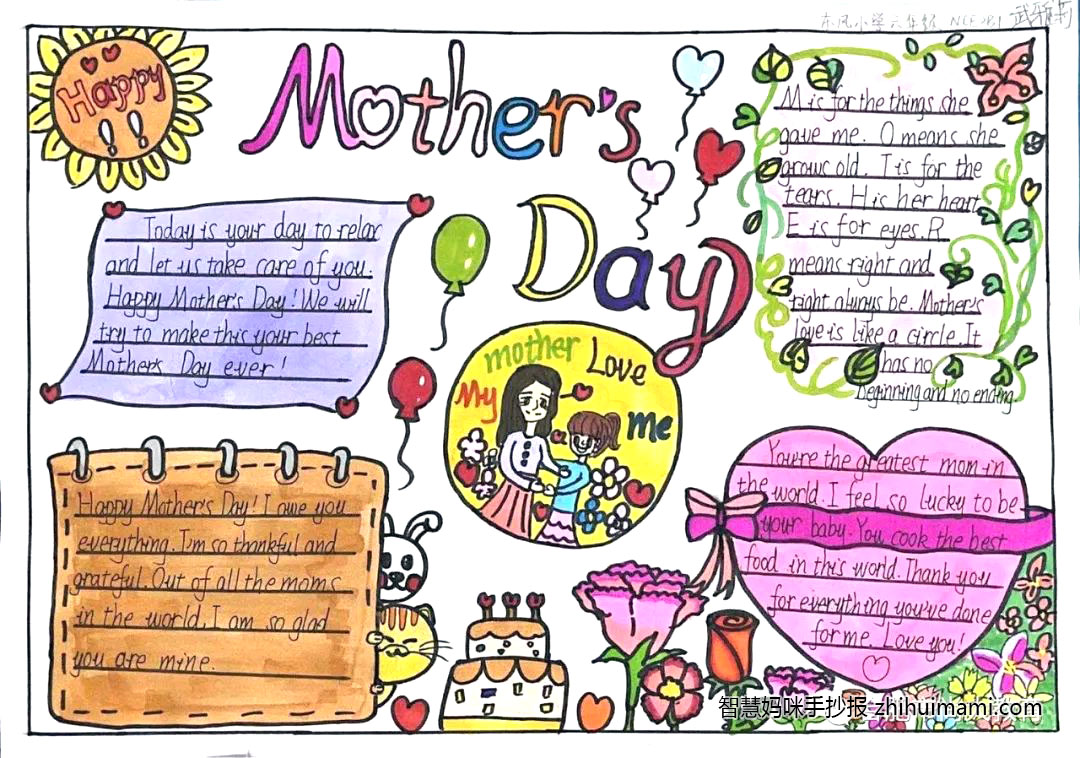 东风小学六年级 NCE2B1 武雅莉
Happy
!!
Mother's
Day
M is for the things she
gave me. O means she
grows old. T is for the
tears. H is her heart
E is for eyes. R
means right and
right always be. Mother's
love is like a circle. It
has no
beginning and no ending.
Today is your day to relax
and let us take care of you.
Happy Mother's Day! We will
try to make this your best
Mother's Day ever!
My mother Love me
Happy Mother's Day! I owe you
everything. I'm so thankful and
grateful. Out of all the moms
in the world, I am so glad
you are mine.
You're the greatest mom in
the world. I feel so lucky to be
your baby. You cook the best
food in this world. Thank you
for everything you've done
for me. Love you!
智慧妈咪手抄报 zhihuimami.com